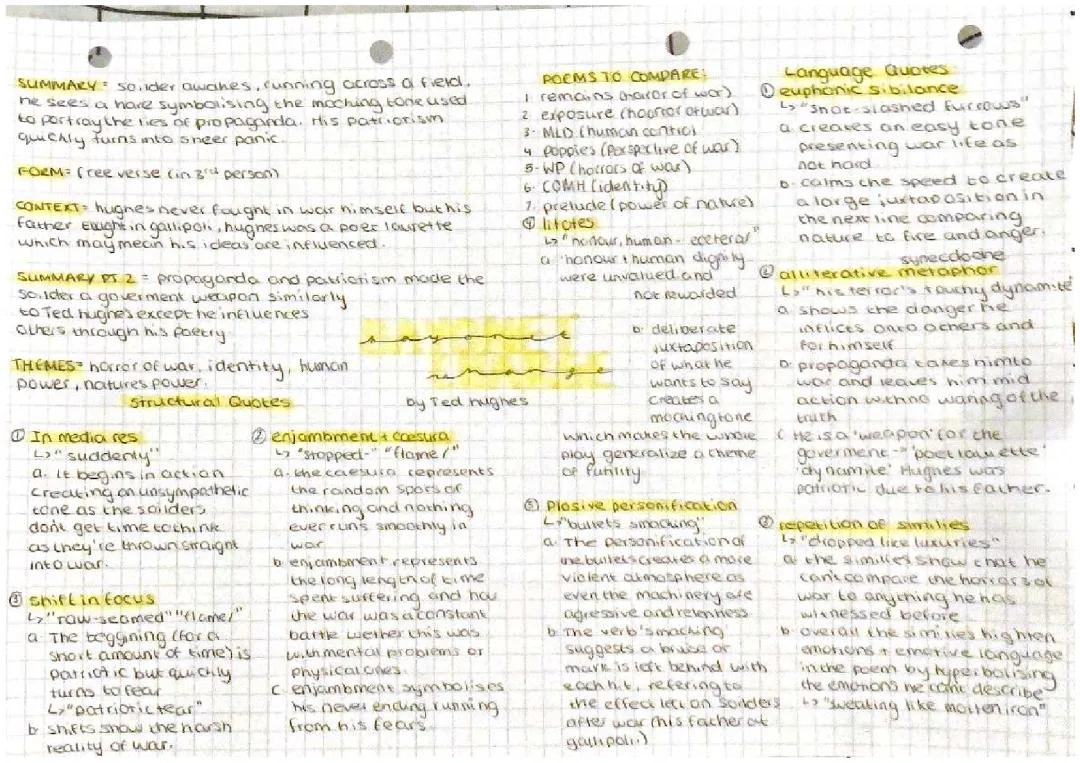 SUMMARY = solider awakes, running across a field.
he sees a hare symbolising the mocking tone used
to portray the lies of propaganda. His patriotism
quickly turns into sheer panic.
FORM = free verse (in 3rd person)
CONTEXT = hughes never fought in war himself but his
father fought in gallipoli, hughes was a poet laurette
which may mean his ideas are influenced.
SUMMARY PT 2 = propaganda and patriotism made the
solider a goverment weapon similarly
to Ted hughes except he influences
others through his poetry
THEMES = horror of war, identity, human
power, natures power.
bayonet
charge
by Ted hughes
Structural Quotes
① In media res
↳ "suddenly"
a. it begins in action
creating an unsympathetic
tone as the soliders
dont get time to think
as they're thrown straight
into war.
③ shift in focus
↳ "raw-seamed" "flame/"
a. The beggining (for a
short amount of time) is
patriotic but quickly
turns to fear
↳ "patriotic tear"
b shifts show the harsh
reality of war.
② enjambment + caesura
↳ "stopped-" "flame/"
a. the caesura represents
the random spots of
thinking and nothing
ever runs smoothly in
war
b enjambment represents
the long length of time
spent suffering and how
the war was a constant
battle wether this was
with mental problems or
physical ones.
c enjambment symbolises
his never ending running
from his fears.
POEMS TO COMPARE:
1 remains (horror of war)
2. exposure (horror of war)
3. MLD (human control
4 poppies (perspective of war)
5. WP (horrors of war)
6. COMH (identity)
7. prelude (power of nature)
④ litotes
↳ "honour, human - ecetera"
a 'honour + human dignity
were unvalued and
not rewarded
b deliberate
juxtaposition
of what he
wants to say
creates a
mocking tone
which makes the whole
play generalize a theme
of futility
⑤ Plosive personification
↳ "bullets smacking"
a. The personification of
the bullets creates a more
violent atmosphere as
even the machinery are
agressive and relentless
b The verb 'smacking'
suggests a bruise or
mark is left behind with
each hit, refering to
the effect left on soliders
after war (his father at
gallipoli.)
Language Quotes
① euphonic sibilance
↳ "shot-slashed furrows"
a creates an easy tone
presenting war life as
not hard
b. calms the speed to create
a large juxtaposition in
the next line comparing
nature to fire and anger.
synecdoche
② alliterative metaphor
↳ "his terror's touchy dynamite
a shows the danger he
inflicts onto others and
for himself
b propaganda takes him to
war and leaves him mid
action with no waring of the
truth
c He is a 'weapon' for the
goverment -> 'poet lauette'
'dynamite' Hughes was
patriotic due to his father.
③ repetition of similies
↳ "dropped like luxuries"
a the similies show that he
can't compare the horrors of
war to anything he has
witnessed before
b overall the similies highten
emotions + emotive language
in the poem by hyperbolising
the emotions he cant describe
↳ "sweating like molten iron"